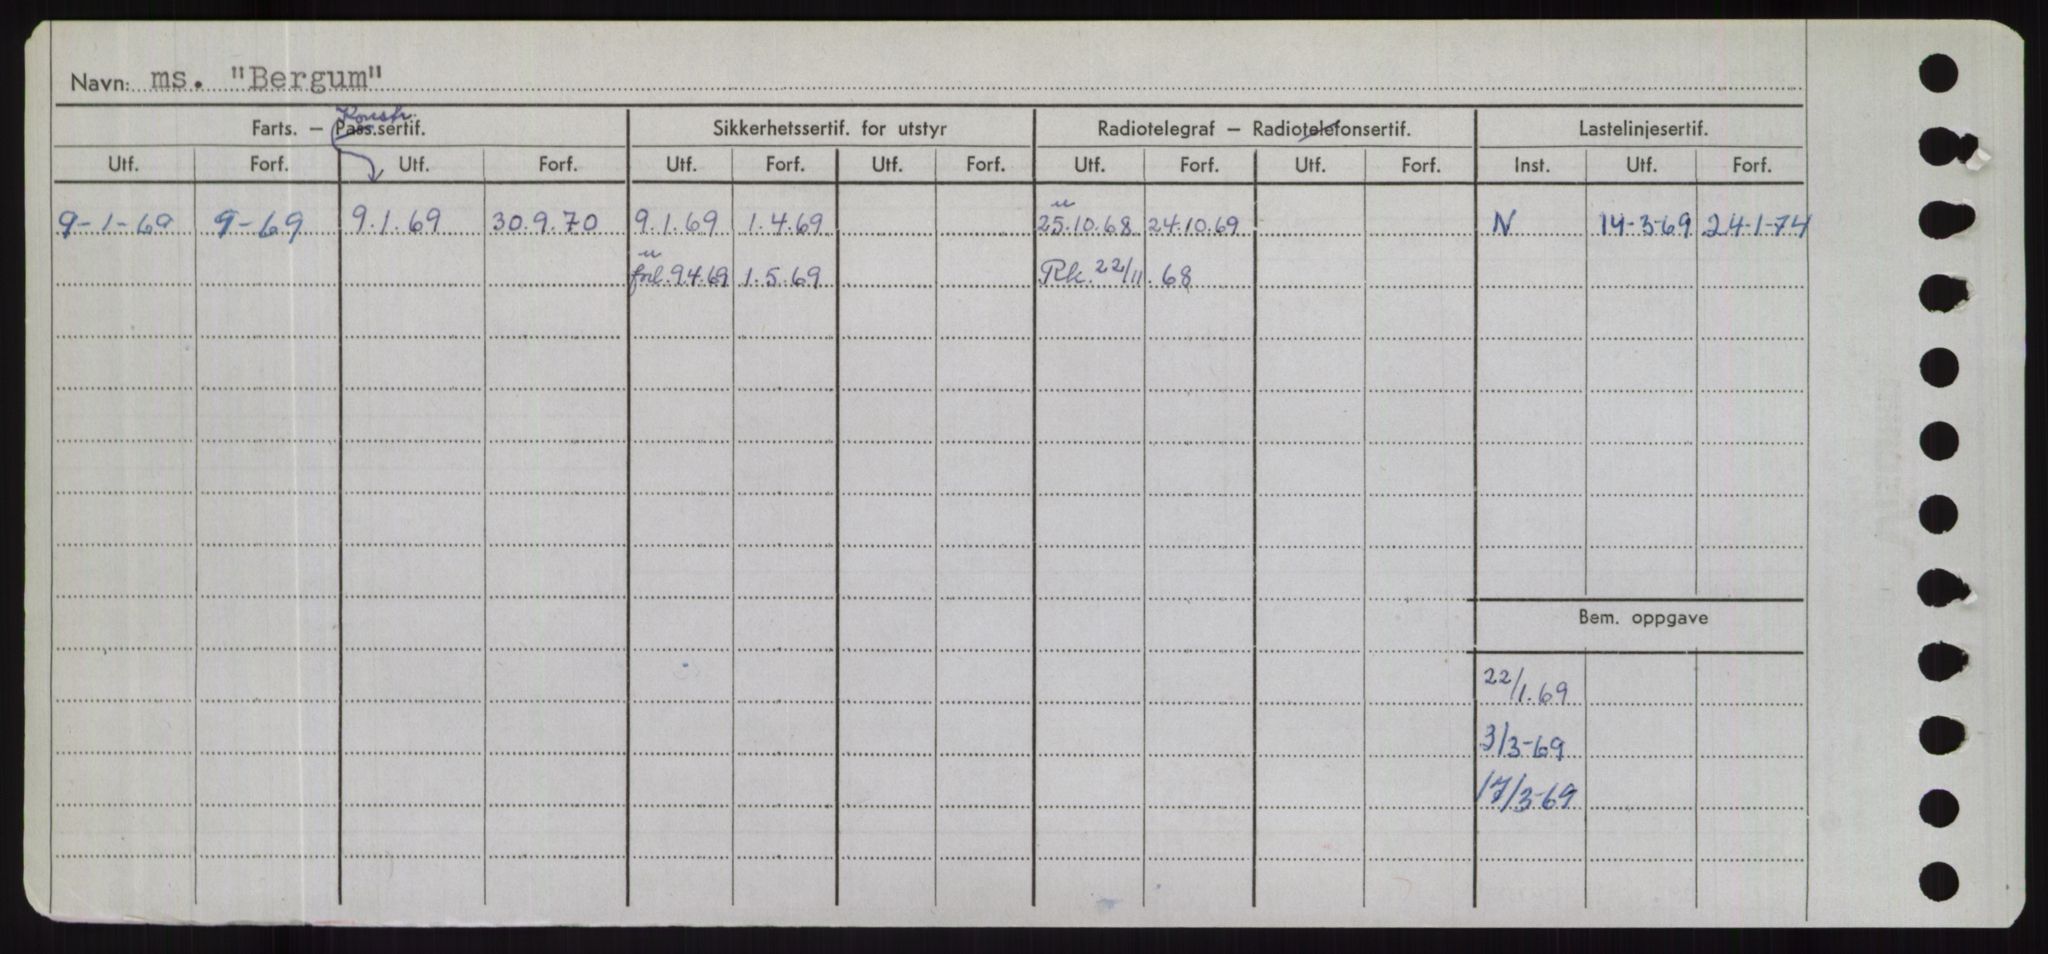 Navn: ms. "Bergum"
Konstr.
Farts. — Pass.sertif. Sikkerhetssertif. for utstyr Radiotelegraf — Radiotelefonsertif. Lastelinjesertif.
Utf. Forf. Utf. Forf. Utf. Forf. Utf. Forf. Utf. Forf. Utf. Forf. Inst. Utf. Forf.
9-1-69 9-69 9.1.69 30.9.70 9.1.69 1.4.69 25.10.68 24.10.69 N 14-3-69 24-1-74
forl. 9.4.69 1.5.69 Rk. 22/11.68
Bem. oppgave
22/1.69
3/3-69
17/3-69